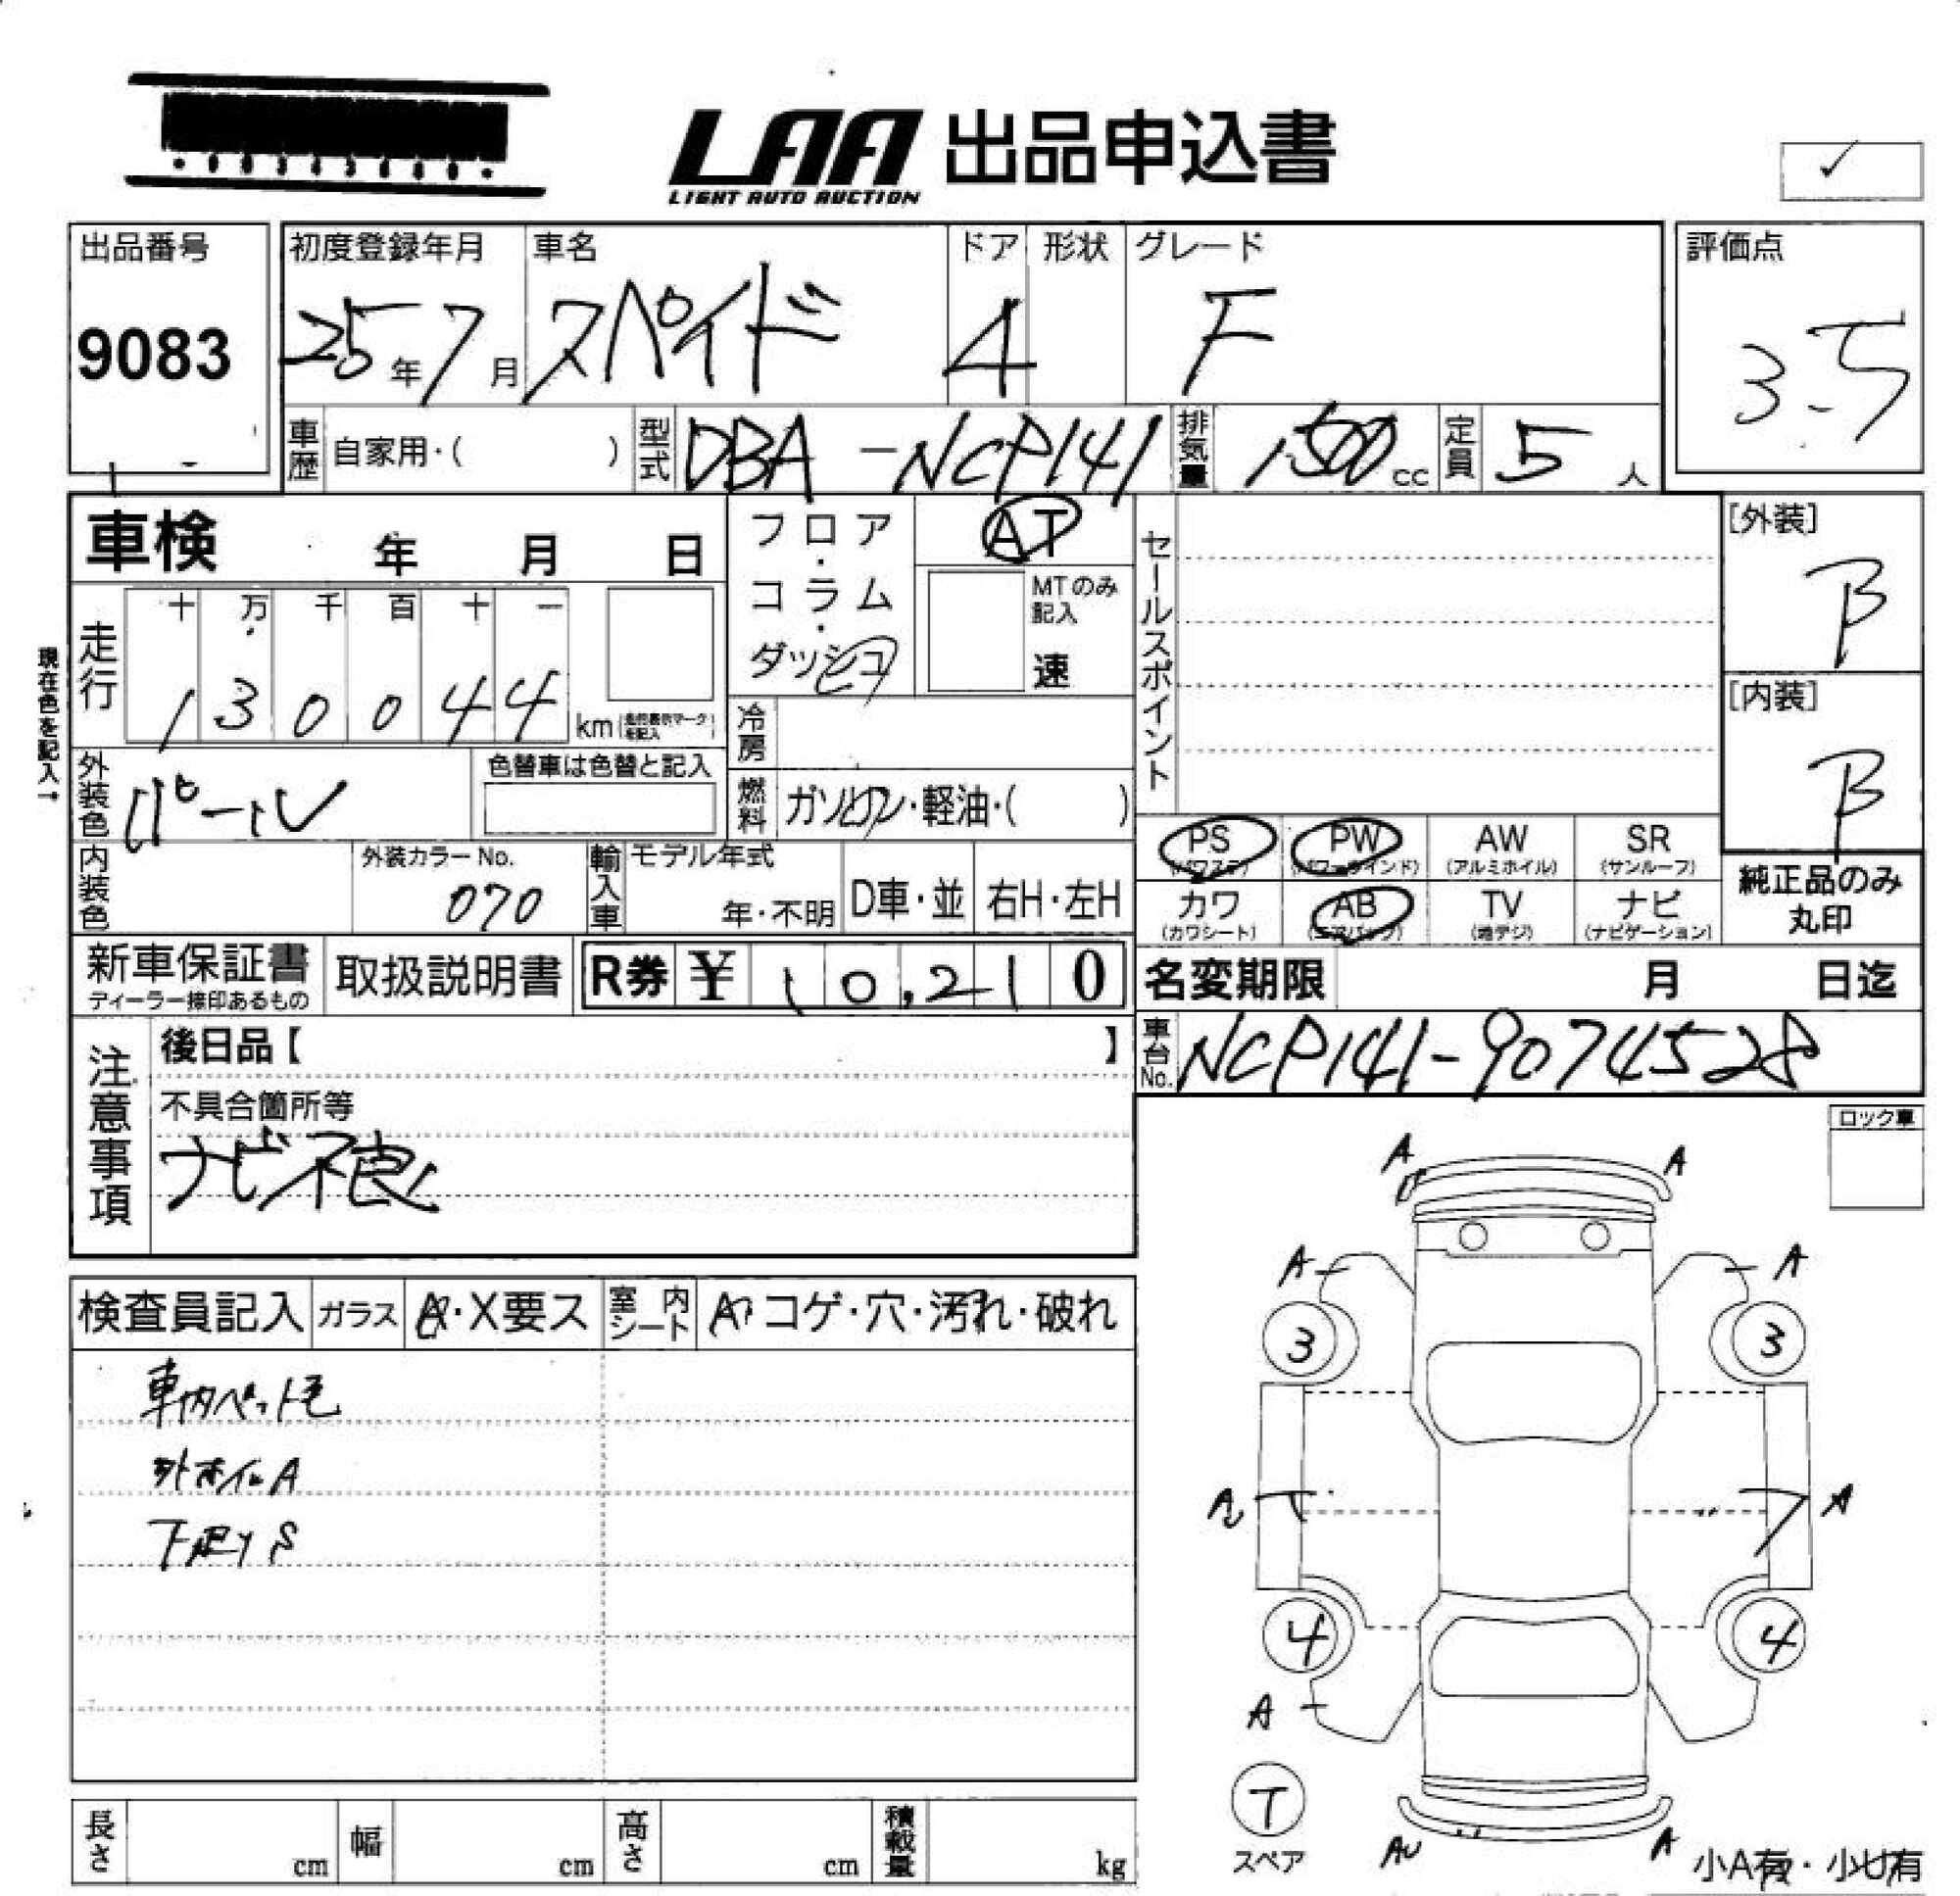 LAA 出品申込書
LIGHT AUTO AUCTION
✓
出品番号
9083
初度登録年月
25年7月
車名
スペイド
ドア
4
形状
グレード
F
評価点
3.5
車歴 自家用・( )
型式 DBA-NCP141
排気量 1500cc
定員 5人
車検 年 月 日
フロア・コラム・ダッシュ
AT
MTのみ記入
速
セールスポイント
[外装]
B
[内装]
B
現在色を記入→
走行
十 万 千 百 十 一
1 3 0 0 4 4 km
冷房
外装色 パール
色替車は色替と記入
燃料 ガソリン・軽油・( )
PS (パワステ)
PW (パワーウインド)
AW (アルミホイル)
SR (サンルーフ)
カワ (カワシート)
AB (エアバッグ)
TV (地デジ)
ナビ (ナビゲーション)
純正品のみ丸印
内装色
外装カラーNo.
070
輸入車
モデル年式
年・不明
D車・並
右H・左H
新車保証書
ディーラー捺印あるもの
取扱説明書
R券 ¥ 10,210
名変期限 月 日迄
車台No. NCP141-9074528
注意事項
後日品【 】
不具合箇所等
ナビ不良
ロック車
検査員記入
ガラス A・X要ス
室内シート A・コゲ・穴・汚れ・破れ
車内ペット毛
外ホイルA
下廻りS
A A
A A
3 3
A
4 4
A
T
スペア
A
小A有・小U有
長さ cm
幅 cm
高さ cm
積載量 kg